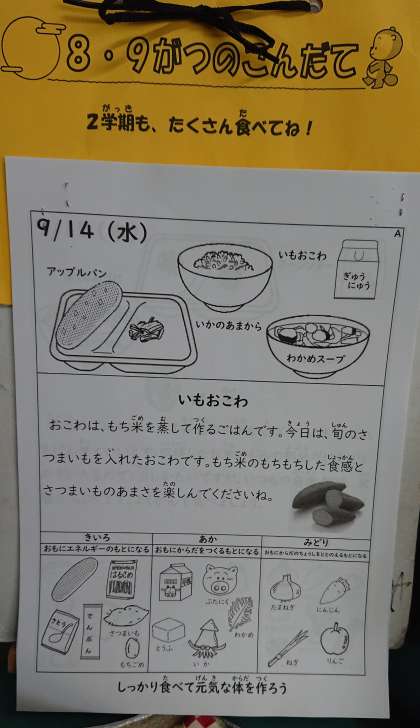 8・9がつのこんだて
2学期も、たくさん食べてね！
9/14（水）
A
アップルパン
いもおこわ
ぎゅうにゅう
いかのあまから
わかめスープ
いもおこわ
おこわは、もち米を蒸して作るごはんです。今日は、旬のさ
つまいもを入れたおこわです。もち米のもちもちした食感と
さつまいものあまさを楽しんでくださいね。
きいろ
おもにエネルギーのもとになる
あか
おもにからだをつくるもとになる
みどり
おもにからだのちょうしをととのえるもとになる
さとう
でんぷん
さつまいも
もちごめ
ぶたにく
わかめ
とうふ
いか
たまねぎ
にんじん
ねぎ
りんご
しっかり食べて元気な体を作ろう